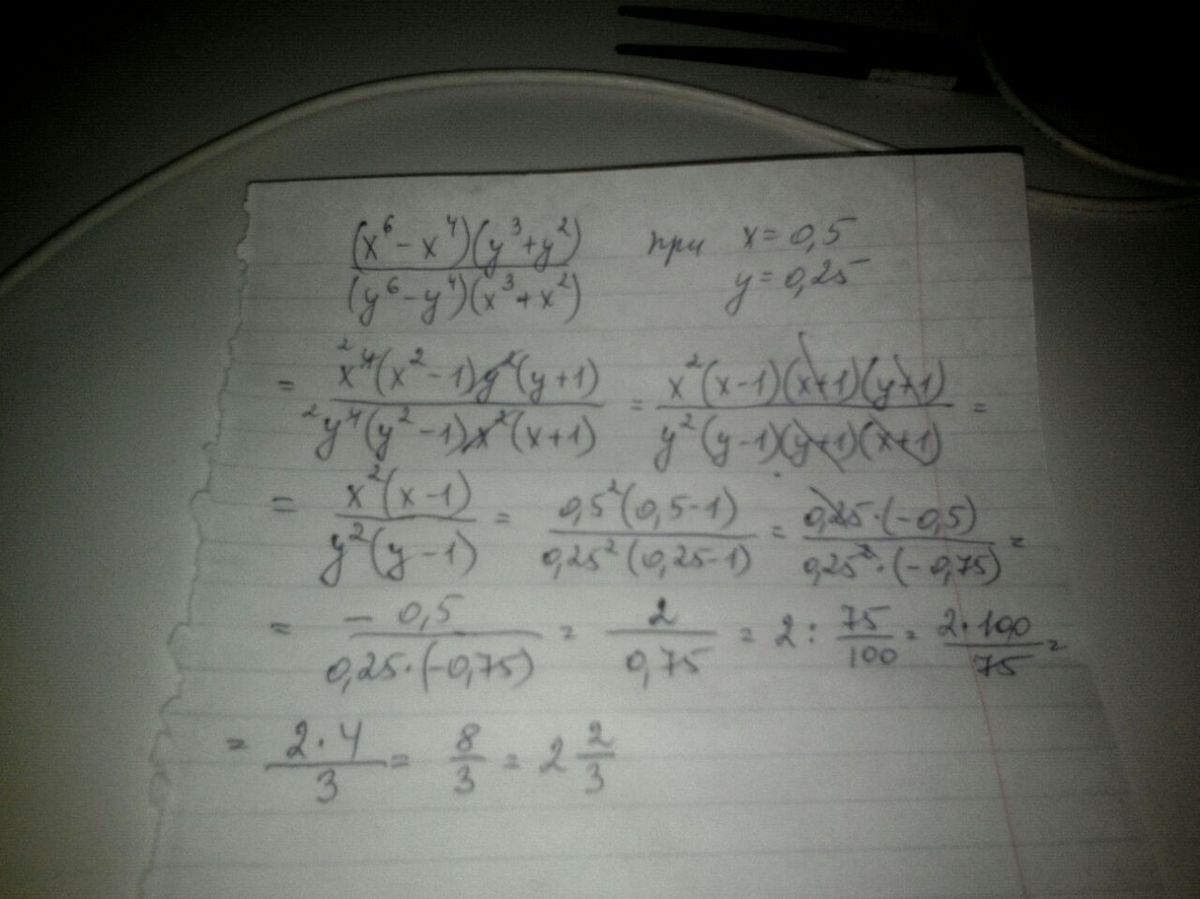 (x⁶ - x⁴)(y³ + y²) / (y⁶ - y⁴)(x³ + x²) при x = 0,5 y = 0,25
= x⁴ ²(x² - 1)y²(y + 1) / ²y⁴(y² - 1)x²(x + 1) = x²(x - 1)(x + 1)(y + 1) / y²(y - 1)(y + 1)(x + 1) =
= x²(x - 1) / y²(y - 1) = 0,5²(0,5 - 1) / 0,25²(0,25 - 1) = 0,25·(-0,5) / 0,25²·(-0,75) =
= - 0,5 / 0,25·(-0,75) = 2 / 0,75 = 2 : 75/100 = 2·100 / 75 =
= 2·4 / 3 = 8/3 = 2 2/3